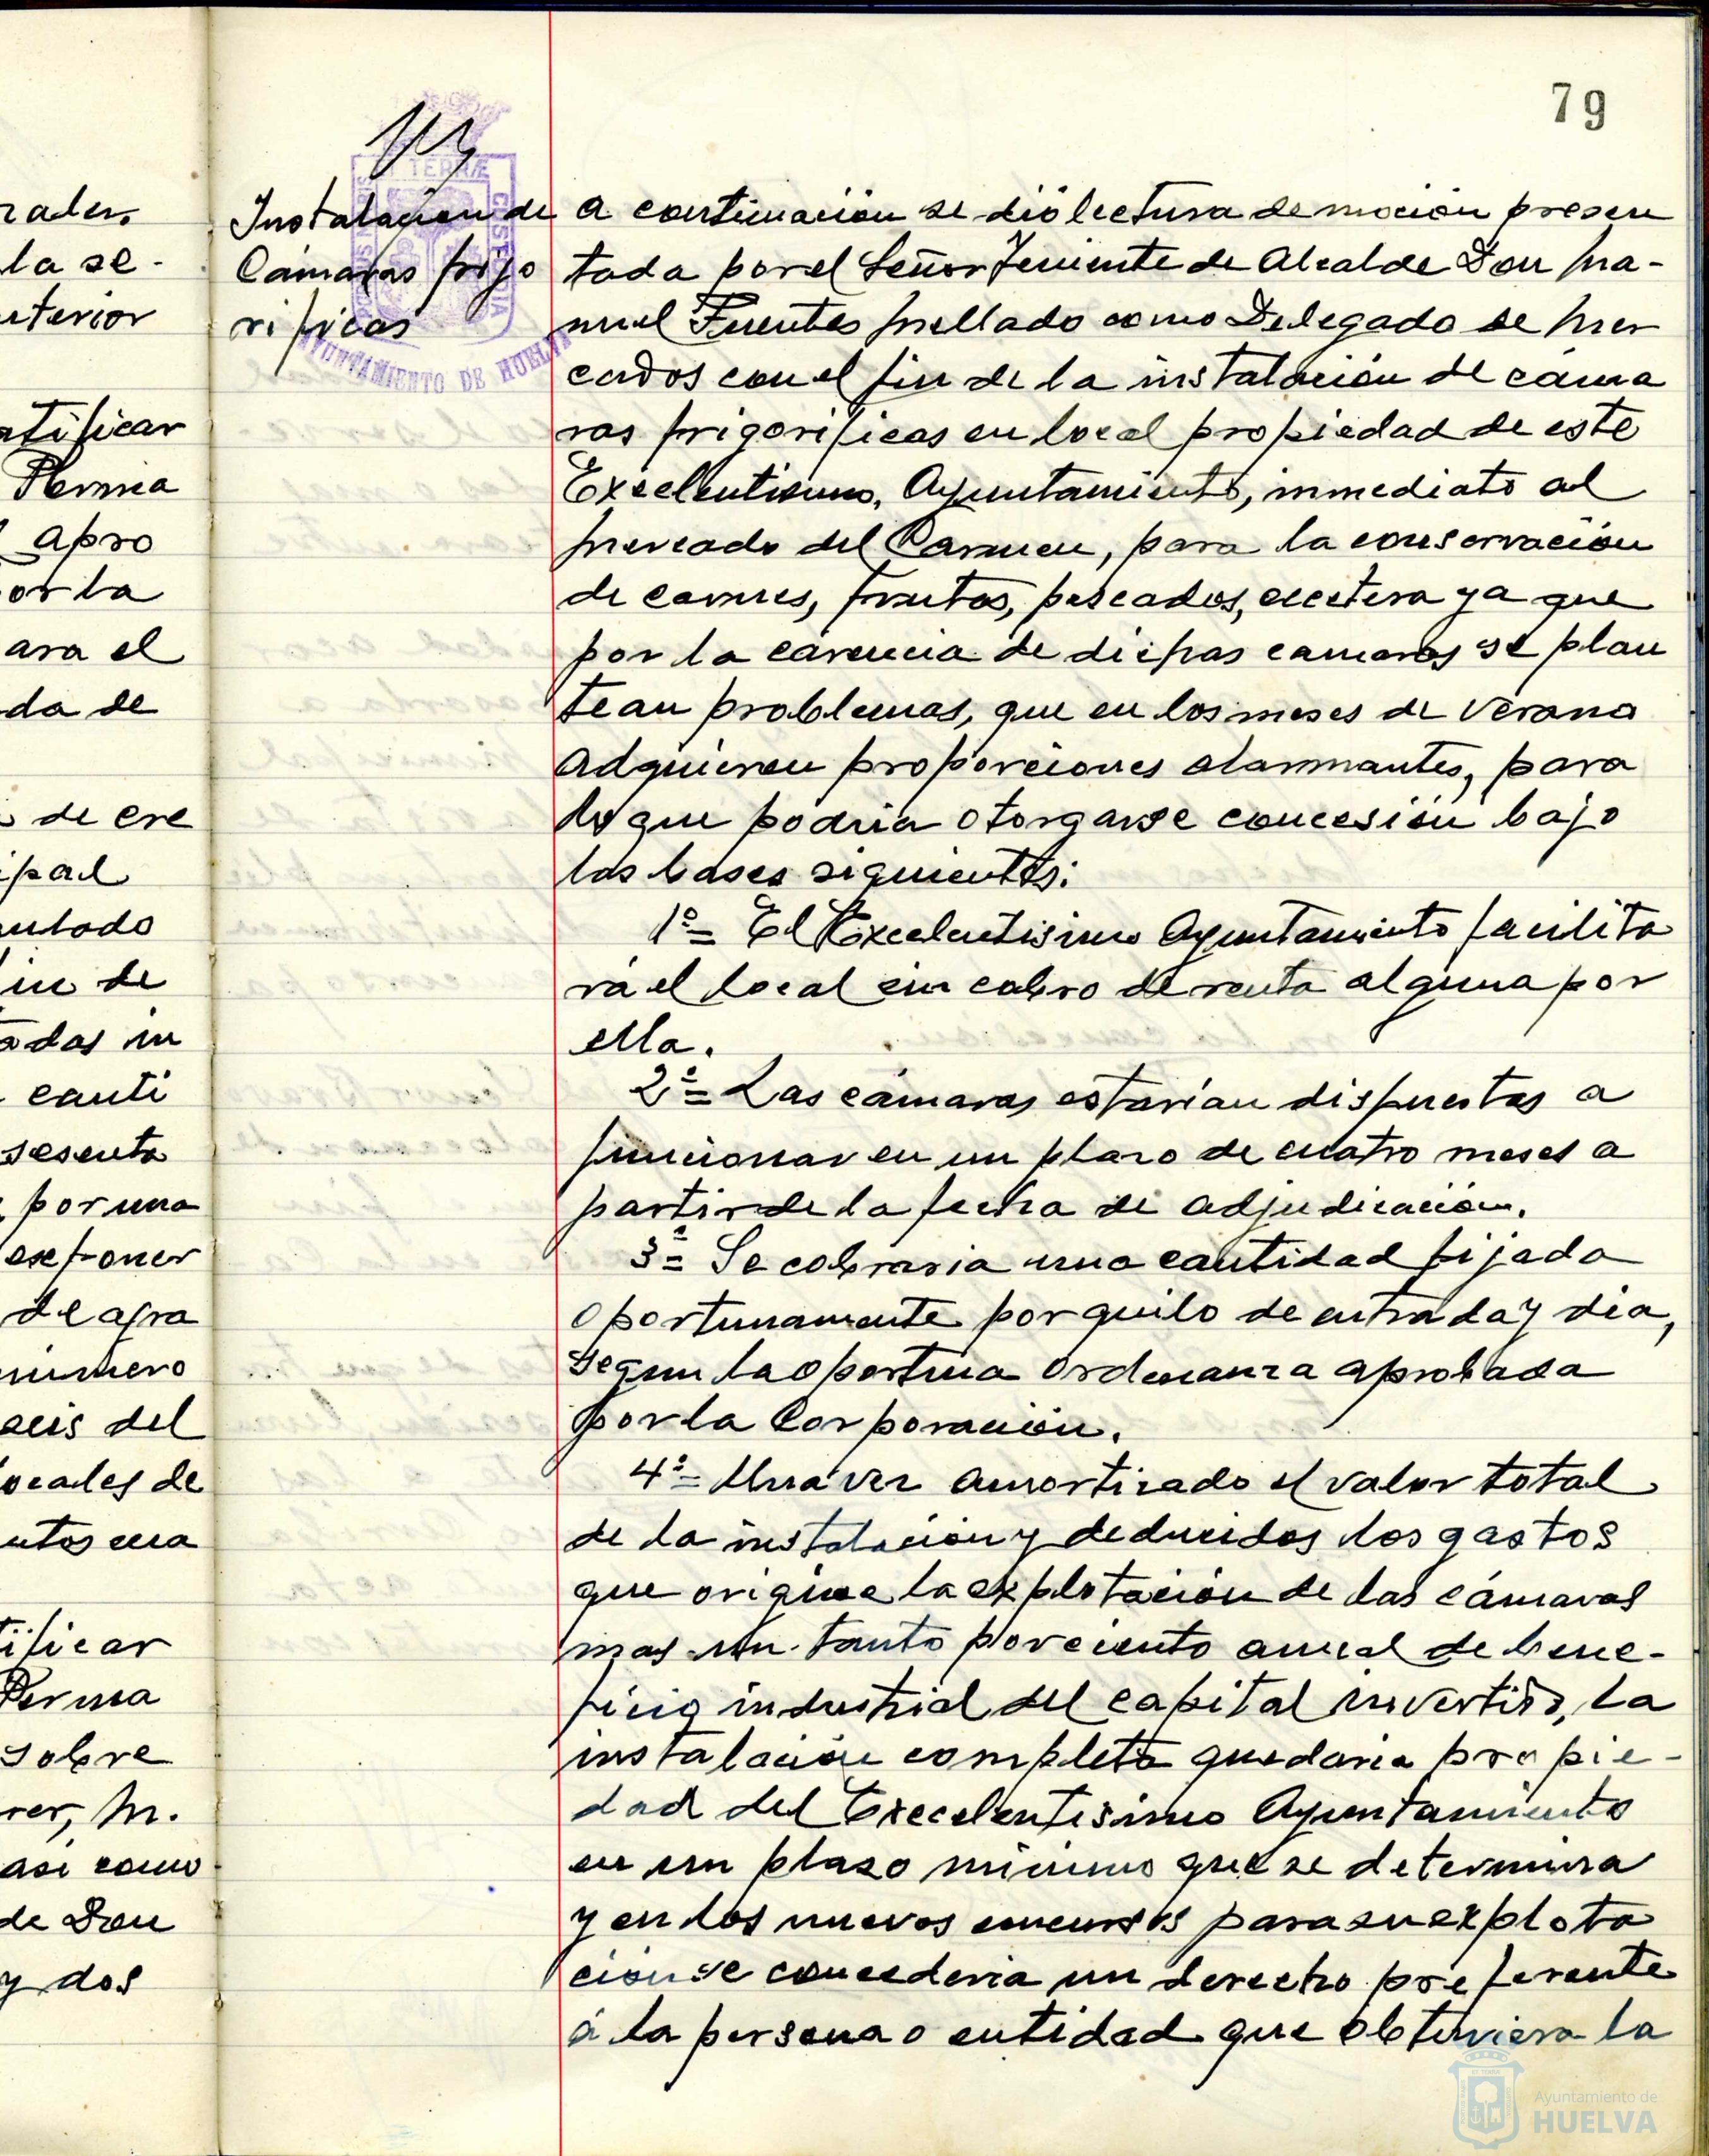 79
rales.
la se-
nterior
atificar
Perma
apro
or la
ara el
da de
de cre
ipal
ntado
in de
adas in
canti
sesenta
por una
exponer
de apra
número
seis del
locales de
tificar
Perma
sobre
rer, M.
asi como
de Don
y dos
TERRÆ
CUSTODIA
AYUNTAMIENTO DE HUELVA
Instalación de
Cámaras frigo
rificas
a continuación se dió lectura de moción presen
tada por el Señor Teniente de Alcalde Don Ma-
nuel Fuentes Mellado como Delegado de Mer
cados con el fin de la instalación de cáma
ras frigorificas en local propiedad de este
Excelentisimo, Ayuntamiento, inmediato al
Mercado del Carmen, para la conservación
de carnes, frutas, pescados, ecetera ya que
por la carencia de dichas camaras se plan
tean problemas, que en los meses de verano
adquieren proporciones alarmantes, para
lo que podria otorgarse concesión bajo
las bases siguientes:
1º= El Excelentisimo Ayuntamiento facilita
rá el local sin cobro de renta alguna por
ella.
2º= Las cámaras estarian dispuestas a
funcionar en un plazo de cuatro meses a
partir de la fecha de adjudicación.
3º= Se cobraria una cantidad fijada
oportunamente por quilo de entrada y dia,
segun la oportuna Ordenanza aprobada
por la Corporación.
4º= Una vez amortizado el valor total
de la instalación y deducidos los gastos
que origine la explotación de las cámaras
mas un tanto por ciento anual de bene-
ficio industrial del capital invertido, la
instalación completa quedaria propie-
dad del Excelentisimo Ayuntamiento
en un plazo minimo que se determina
y en los nuevos concursos para su explota
ción se concederia un derecho preferente
á la persona o entidad que obtuviera la
Ayuntamiento de
HUELVA